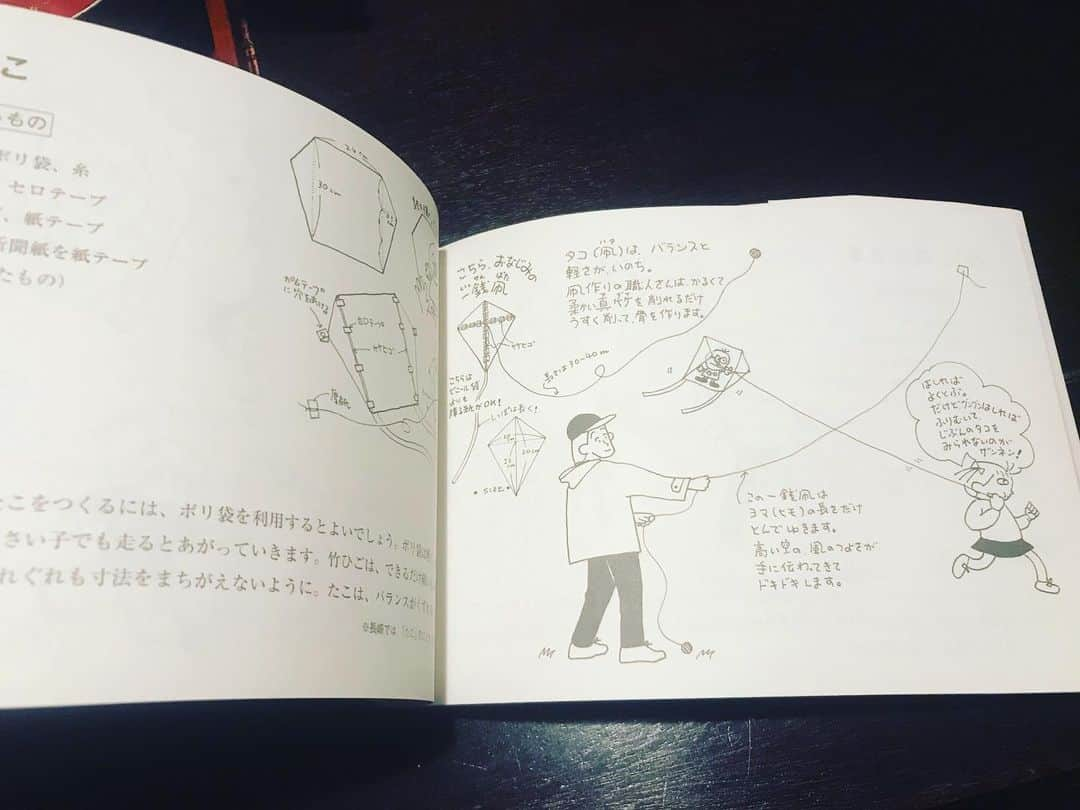 こ
もの
ポリ袋、糸
セロテープ
、紙テープ
新聞紙を紙テープ
たもの）
24cm
30cm
ガムテープの
に穴をあける
セロテープ
竹ヒゴ
厚紙
たこをつくるには、ポリ袋を利用するとよいでしょう。ポリ袋
さい子でも走るとあがっていきます。竹ひごは、できるだけ
れぐれも寸法をまちがえないように。たこは、バランスが
※長崎では「たこ」
こちら、おなじみの
一銭凧
竹ヒゴ
こちらは
ビニール紙
よりも
障子紙がOK！
しっぽは長く！
20cm
•size•
タコ（凧）は、バランスと
軽さが、いのち。
凧作りの職人さんは、かるくて
柔かい真竹を削れるだけ
うすく削って、骨を作ります。
長さは30〜40m
はしれば
よくとぶ。
だけどグングンはしれば
ふりむいて、
じぶんのタコを
みられないのが
ザンネン！
この一銭凧は
ヨマ（ヒモ）の長さだけ
とんでゆきます。
高い空の、風のつよさが
手に伝わってきて
ドキドキします。